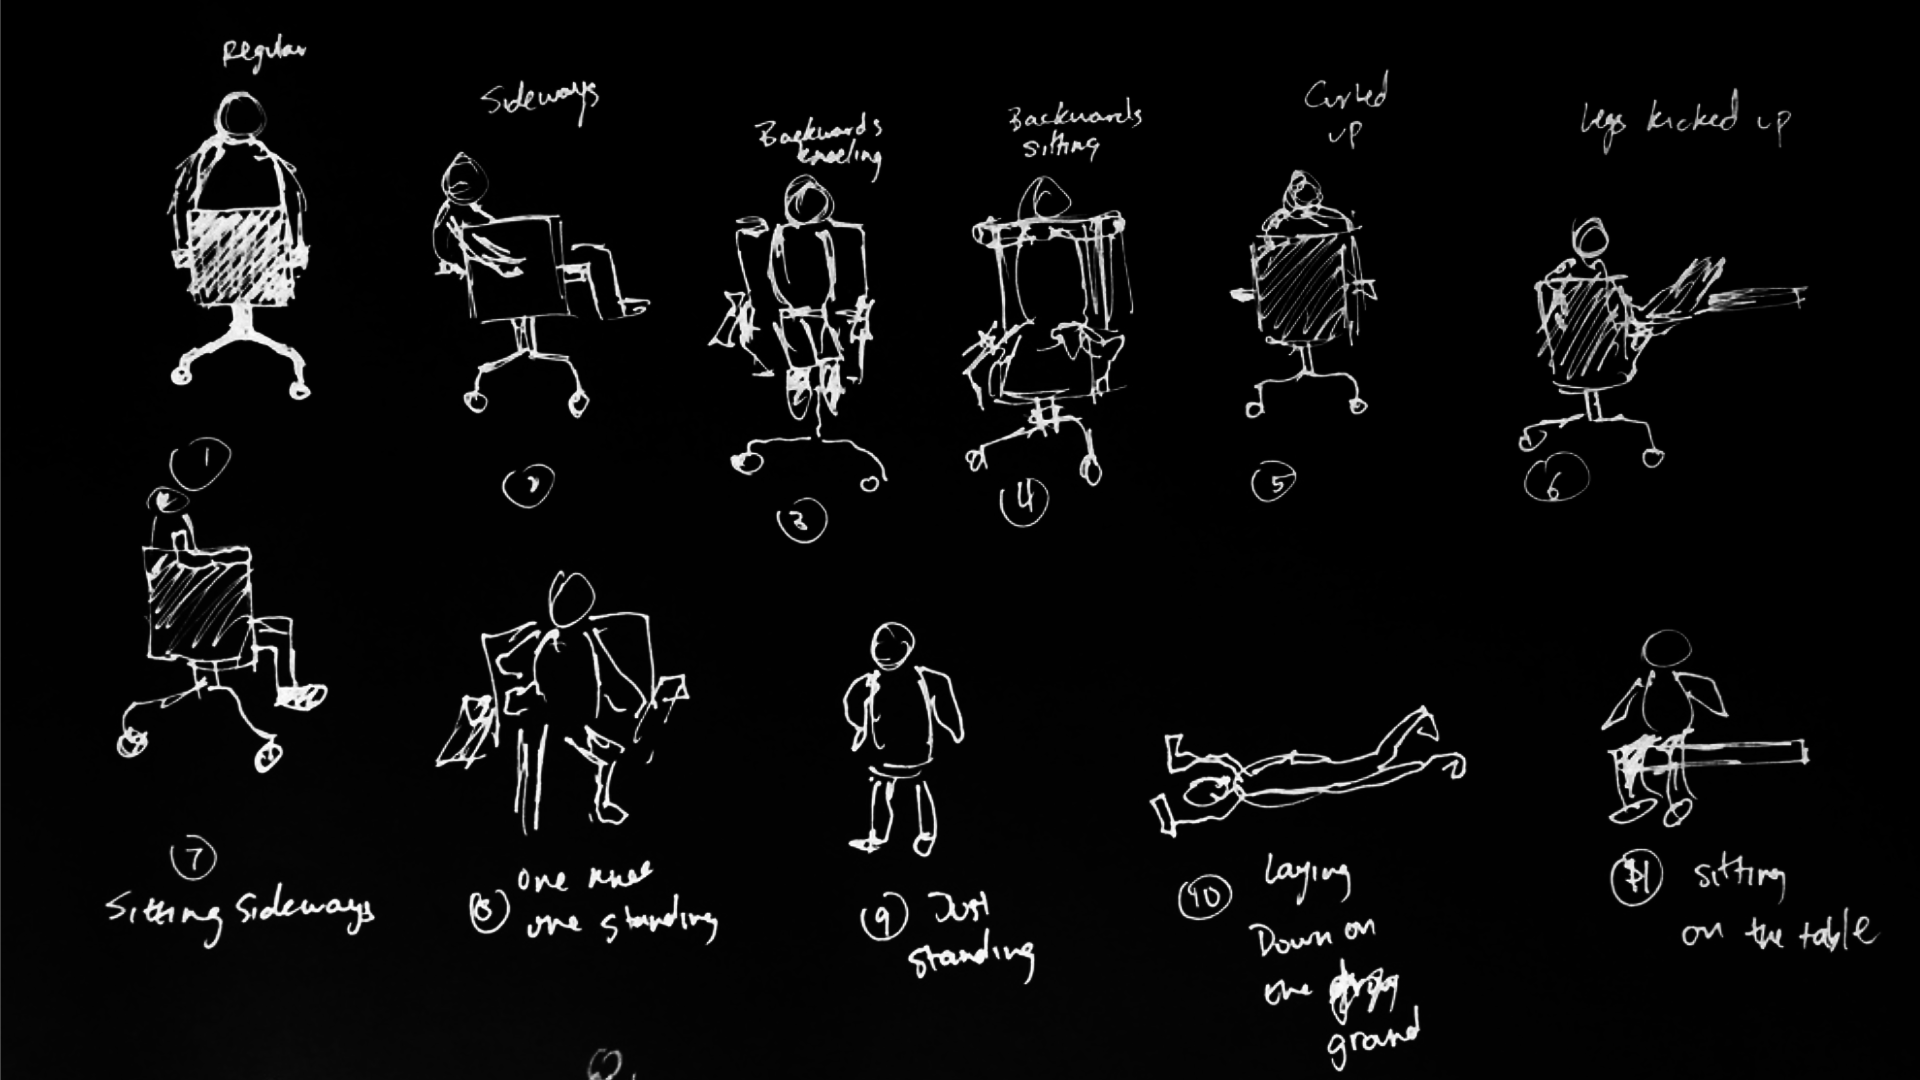 Regular
Sideways
Backwards
kneeling
Backwards
sitting
Curled
up
Legs kicked up
1
2
3
4
5
6
7
Sitting Sideways
8 one knee
one standing
9 Just
standing
10 Laying
Down on
the
ground
11 sitting
on the table